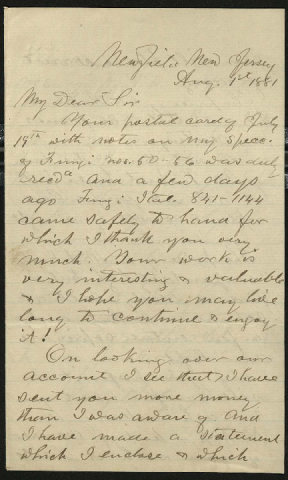 Newfield New Jersey
Aug. 1st 1881
My Dear Sir
Your postal card of July
19th with notes on my spec.
of Fungi nos. 50-56 was duly
recd and a few days
ago Fungi Ital. 841-1144
came safely to hand for
which I thank you very
much. Your work is
very interesting & valuable
& I hope you may live
long to continue & enjoy
it!
On looking over our
account I see that I have
sent you more money
than I was aware of and
I have made a statement
which I enclose & which